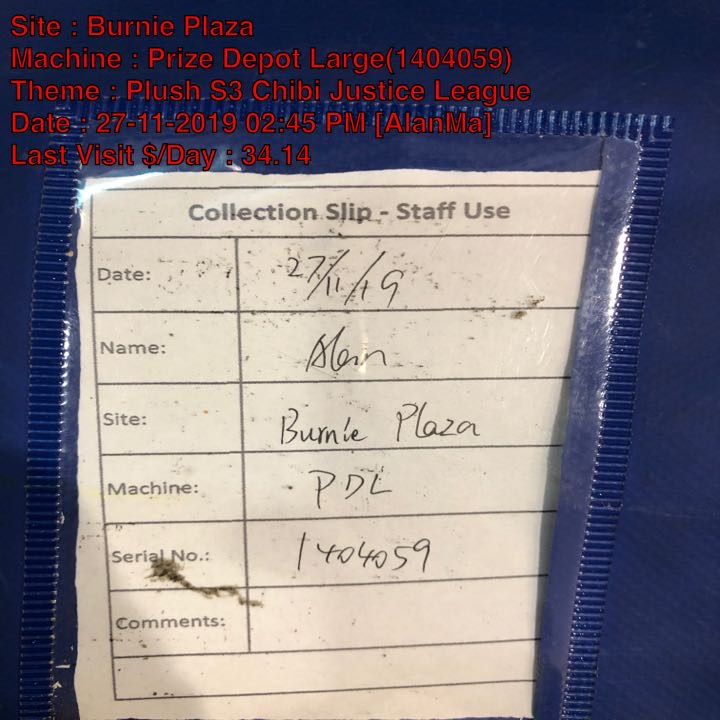 Site : Burnie Plaza
Machine : Prize Depot Large(1404059)
Theme : Plush S3 Chibi Justice League
Date : 27-11-2019 02:45 PM [AlanMa]
Last Visit $/Day : 34.14
Collection Slip - Staff Use
Date: 27/11/19
Name: Alan
Site: Burnie Plaza
Machine: PDL
Serial No.: 1404059
Comments: